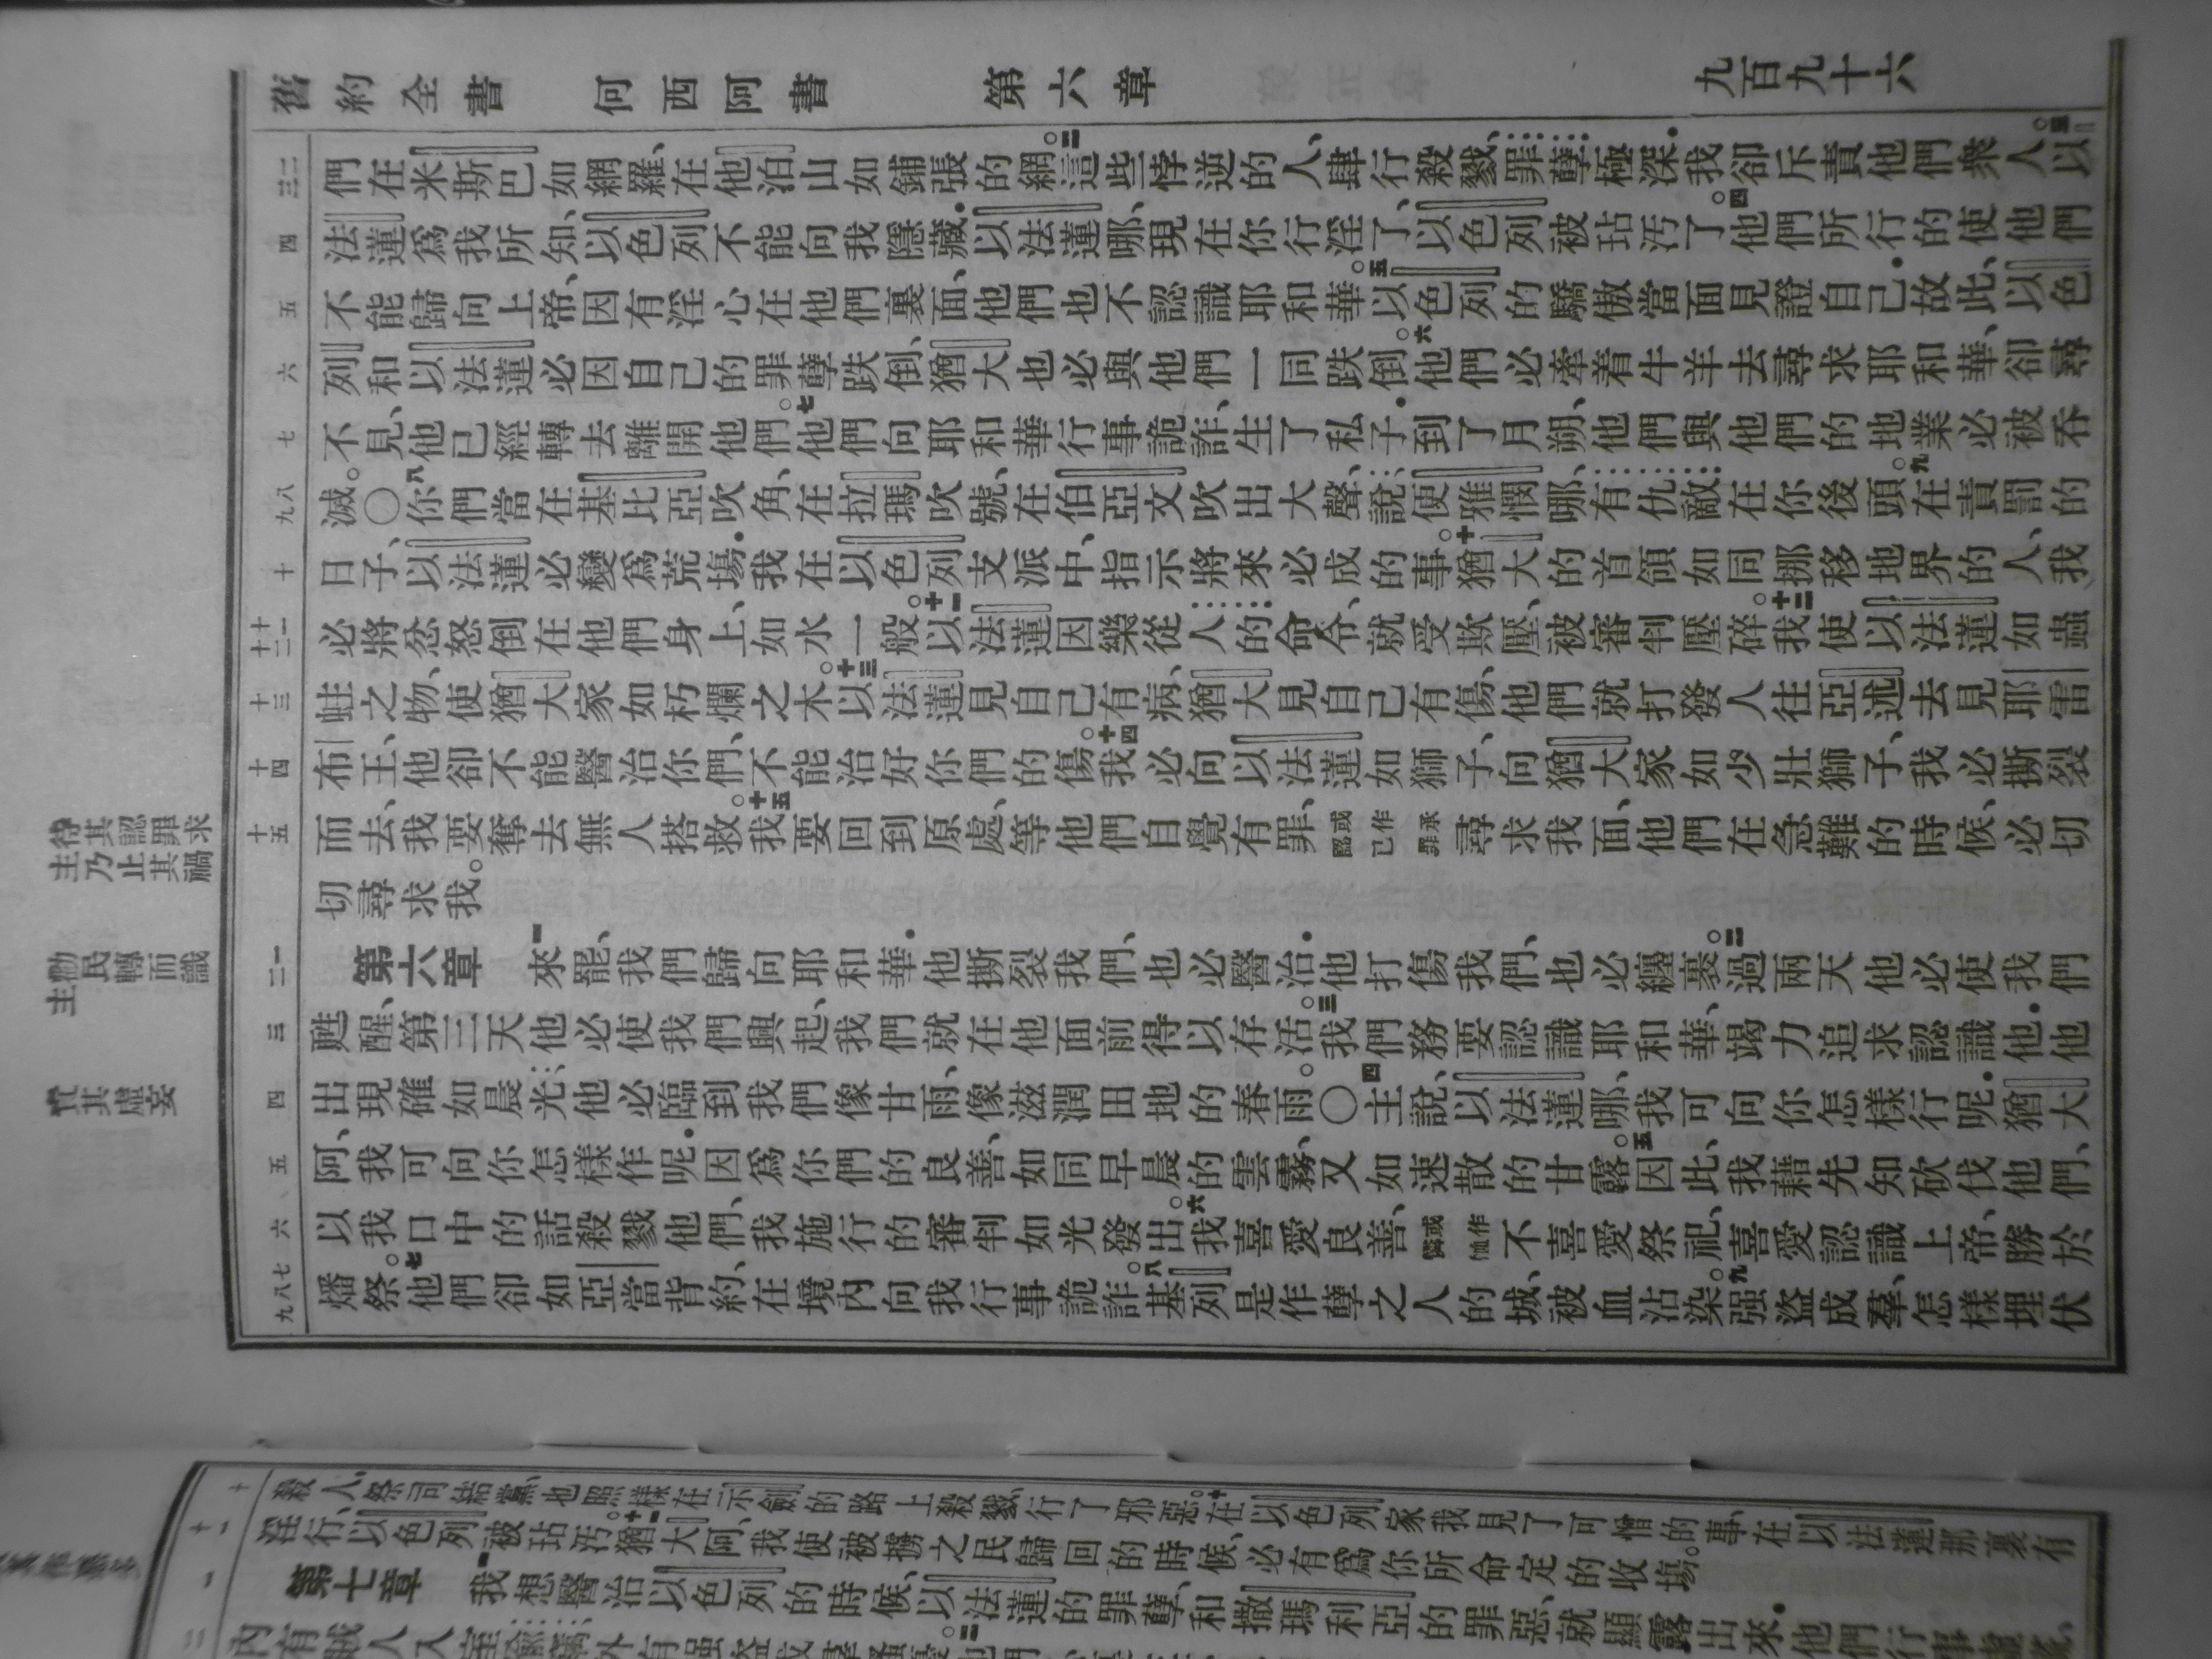 舊約全書 何西阿書 第六章 九百九十六
們在米斯巴如網羅、在他泊山如鋪張的網。二這些悖逆的人、肆行殺戮、罪孽極深.我卻斥責他們衆人。三以
法蓮爲我所知、以色列不能向我隱藏.以法蓮哪、現在你行淫了、以色列被玷汚了。四他們所行的使他們
不能歸向上帝、因有淫心在他們裏面、他們也不認識耶和華。五以色列的驕傲當面見證自己.故此、以色
列和以法蓮必因自己的罪孽跌倒、猶大也必與他們一同跌倒。六他們必牽着牛羊去尋求耶和華、卻尋
不見、他已經轉去離開他們。七他們向耶和華行事詭詐、生了私子.到了月朔、他們與他們的地業必被吞
滅。〇八你們當在基比亞吹角、在拉瑪吹號、在伯亞文吹出大聲、說、便雅憫哪、有仇敵在你後頭。九在責罰的
日子、以法蓮必變爲荒場.我在以色列支派中、指示將來必成的事。十猶大的首領如同挪移地界的人、我
必將忿怒倒在他們身上、如水一般。十一以法蓮因樂從人的命令、就受欺壓、被審判壓碎。十二我使以法蓮如蟲
蛀之物、使猶大家如朽爛之木。十三以法蓮見自己有病、猶大見自己有傷、他們就打發人往亞述去見耶雷
布王、他卻不能醫治你們、不能治好你們的傷。十四我必向以法蓮如獅子、向猶大家如少壯獅子、我必撕裂
而去、我要奪去無人搭救。十五我要回到原處、等他們自覺有罪、或作承認己罪尋求我面、他們在急難的時候、必切
切尋求我。
第六章 一來罷、我們歸向耶和華.他撕裂我們、也必醫治.他打傷我們、也必纏裹。二過兩天他必使我們
甦醒、第三天他必使我們興起、我們就在他面前得以存活。三我們務要認識耶和華、竭力追求認識他.他
出現確如晨光.他必臨到我們像甘雨、像滋潤田地的春雨。〇四主說、以法蓮哪、我可向你怎樣行呢.猶大
阿、我可向你怎樣作呢.因爲你們的良善、如同早晨的雲霧、又如速散的甘露。五因此、我藉先知砍伐他們、
以我口中的話殺戮他們、我施行的審判如光發出。六我喜愛良善、或作憐恤不喜愛祭祀、喜愛認識上帝、勝於
燔祭。七他們卻如亞當背約、在境內向我行事詭詐。八基列是作孽之人的城、被血沾染。九强盜成羣、怎樣埋伏
主待其認罪求
主乃止其禍
主勸民轉而識
主
責其虛妄
殺人、祭司結黨、也照樣在示劍的路上殺戮、行了邪惡。十在以色列家我見了可憎的事、在以法蓮那裏有
淫行、以色列被玷汚。十一猶大阿、我使被擄之民歸回的時候、必有爲你所命定的收場。
第七章 一我想醫治以色列的時候、以法蓮的罪孽、和撒瑪利亞的罪惡、就顯露出來.他們行事虛謊、
內有賊人入室偷竊、外有强盜成羣騷擾。二